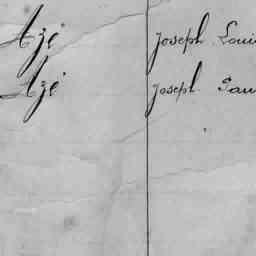 Azé Joseph Loui
Azé Joseph Sau